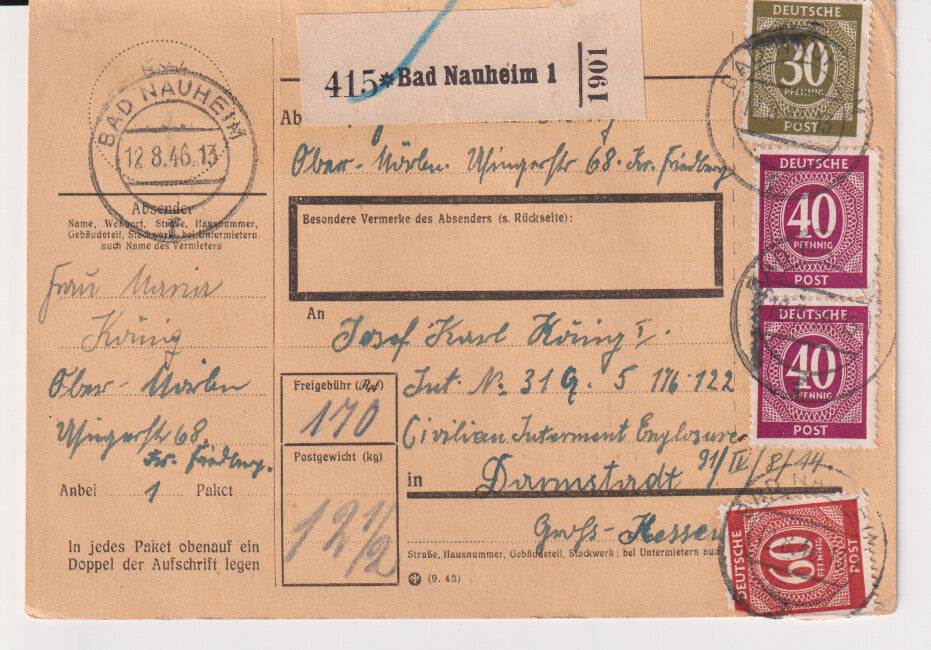 BAD NAUHEIM
12.8.46.13
Absender
Name, Wohnort, Straße, Hausnummer,
Gebäudeteil, Stockwerk, bei Untermietern
auch Name des Vermieters
Frau Maria
König
Ober-Mörlen
Usingerstr 68.
Kr. Friedberg.
Anbei 1 Paket
In jedes Paket obenauf ein
Doppel der Aufschrift legen
415*Bad Nauheim 1
1901
Ab
Ober-Mörlen. Usingerstr 68. Kr. Friedberg
Besondere Vermerke des Absenders (s. Rückseite):
An
Josef Karl König I.
Int. No. 31 G. 5 176.122
Civilian Interment Englosure
91/IV/8/14
in Darmstadt
Gross-Hessen
Straße, Hausnummer, Gebäudeteil, Stockwerk; bei Untermietern auch
Freigebühr (Rpf)
170
Postgewicht (kg)
12 1/2
(9. 43)
DEUTSCHE
30
PFENNIG
POST
DEUTSCHE
40
PFENNIG
POST
DEUTSCHE
40
PFENNIG
POST
DEUTSCHE
60
PFENNIG
POST